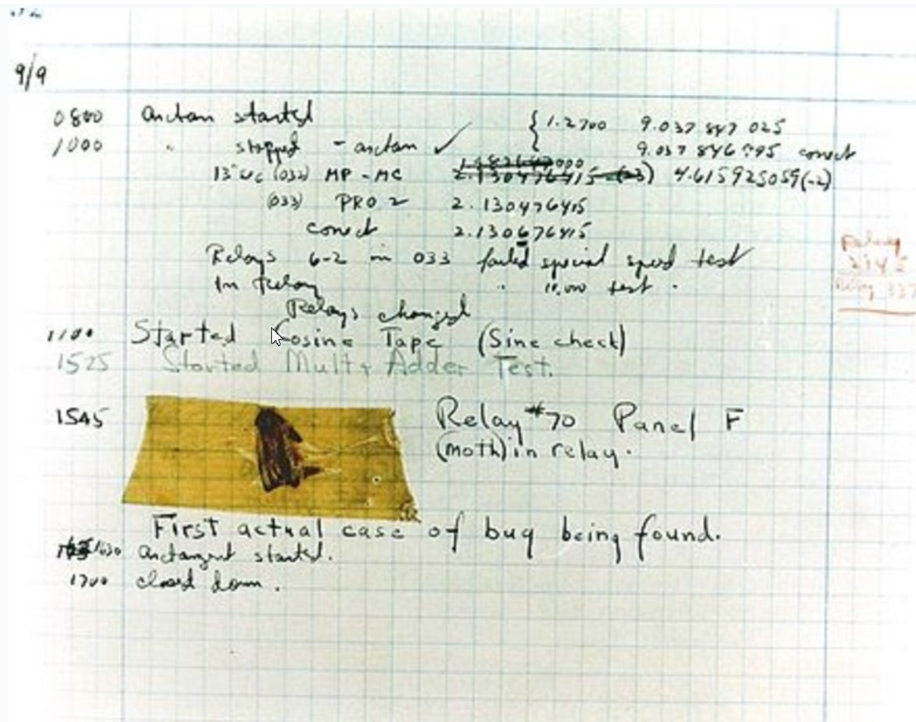 9/9
0800 Antan started { 1.2700 9.037 847 025
1000 " stopped - antan ✓ 9.037 846 995 conect
13"uc (032) MP - MC 2.130476415 (-3) 4.615925059(-2)
(033) PRO 2 2.130476415
conect 2.130676415
Relays 6-2 in 033 failed special speed test
In Relay " 10.000 test "
Relays changed
1100 Started Cosine Tape (Sine check)
1525 Started Mult + Adder Test.
1545 Relay #70 Panel F
(moth) in relay.
First actual case of bug being found.
1630 Antangent started.
1700 closed down.
Relay
2145
Relay 337